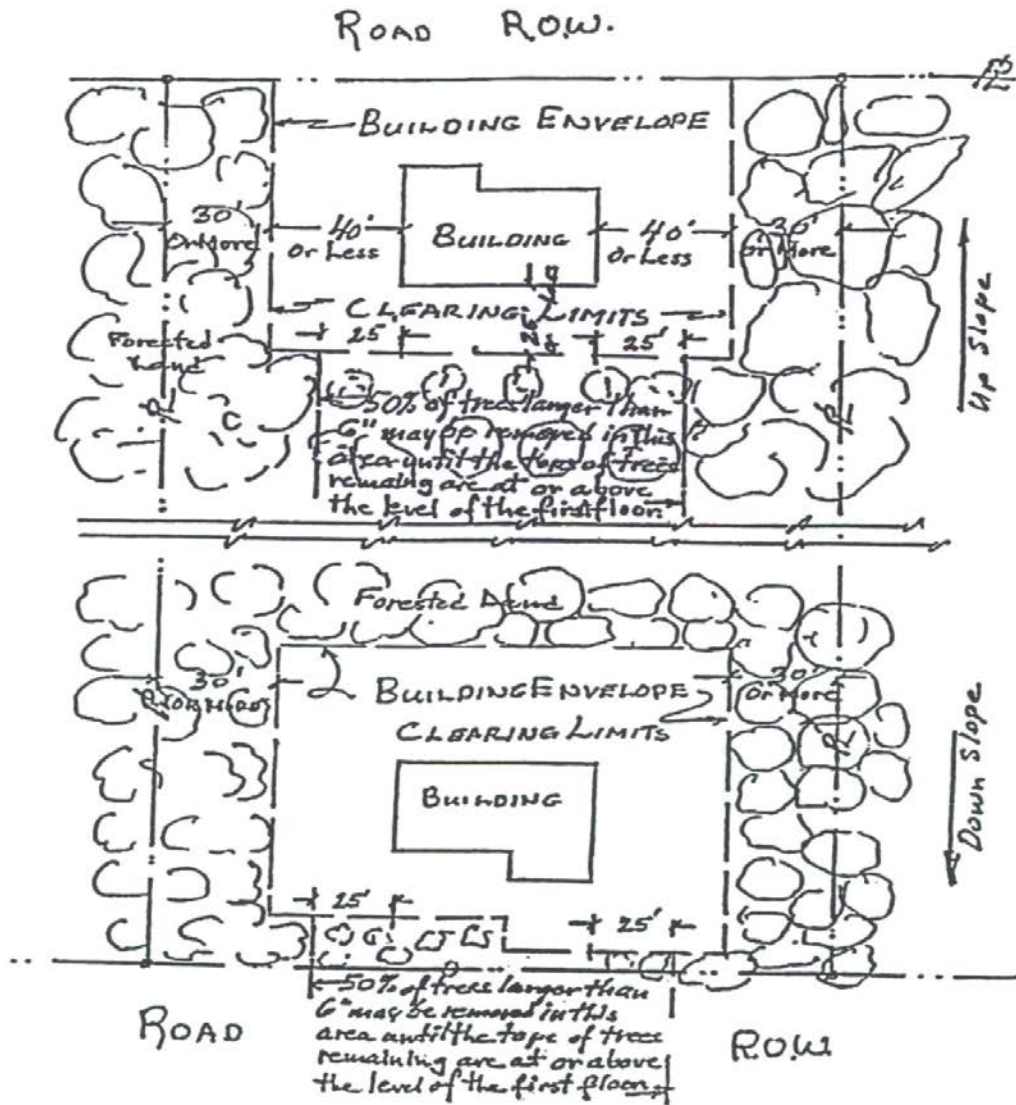 ROAD R.O.W.
BUILDING ENVELOPE
30'
Or More
40'
Or Less
BUILDING
40'
Or Less
30'
Or More
CLEARING LIMITS
25'
25'
Up Slope
Forested
Land
50% of trees larger than
6" may be removed in this
area until the tops of trees
remaing are at or above
the level of the first floor
Forested Land
30'
Or More
BUILDING ENVELOPE
CLEARING LIMITS
30'
Or More
BUILDING
Down Slope
25'
25'
50% of trees larger than
6" may be removed in this
area until the tops of trees
remaining are at or above
the level of the first floor
ROAD R.O.W.